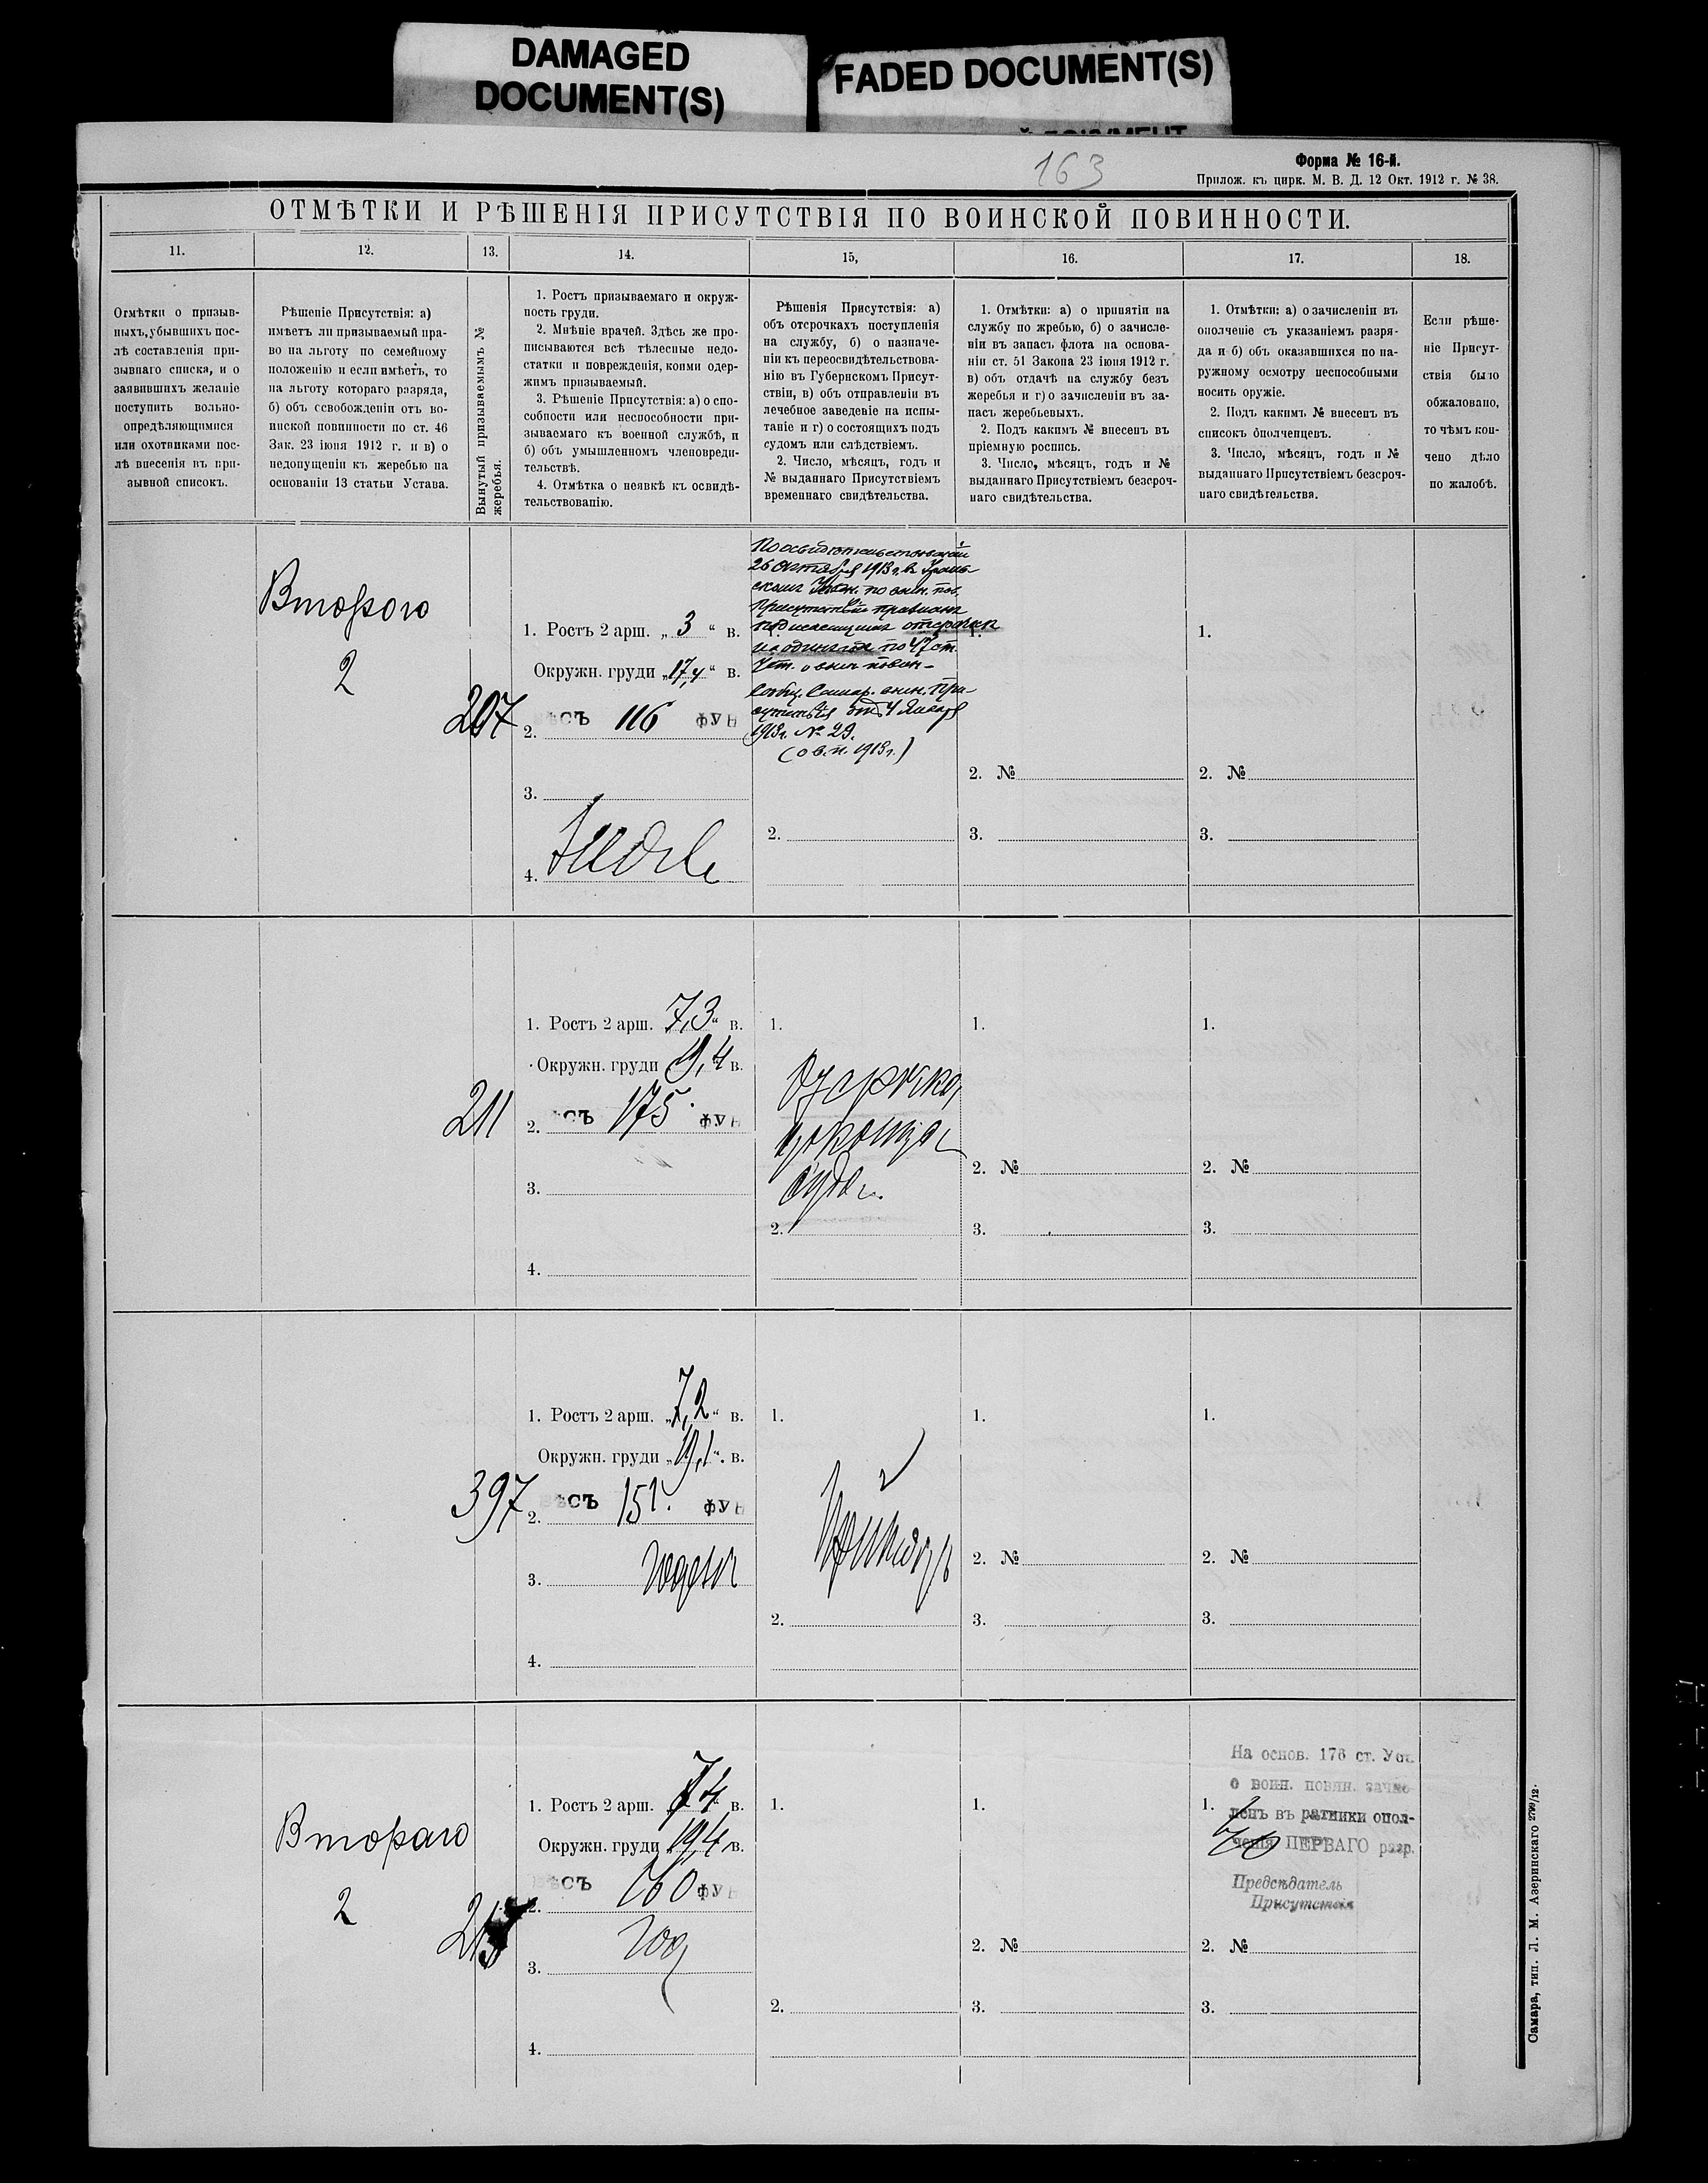 DAMAGED
DOCUMENT(S)
FADED DOCUMENT(S)
163
Форма № 16-й.
Прилож. къ цирк. М. В. Д. 12 Окт. 1912 г. № 38.
ОТМѢТКИ И РѢШЕНІЯ ПРИСУТСТВІЯ ПО ВОИНСКОЙ ПОВИННОСТИ.
11.
12.
13.
14.
15,
16.
17.
18.
Отмѣтки о призыв-
ныхъ, убывшихъ пос-
лѣ составленія при-
зывнаго списка, и о
заявившихъ желаніе
поступить вольно-
опредѣляющимися
или охотниками пос-
лѣ внесенія въ при-
зывной списокъ.
Рѣшеніе Присутствія: а)
имѣетъ ли призываемый пра-
во на льготу по семейному
положенію и если имѣетъ, то
на льготу котораго разряда,
б) объ освобожденіи отъ во-
инской повинности по ст. 46
Зак. 23 іюня 1912 г. и в) о
недопущеніи къ жеребью на
основаніи 13 статьи Устава.
Вынутый призываемымъ №
жеребья.
1. Ростъ призываемаго и окруж-
ность груди.
2. Мнѣніе врачей. Здѣсь же про-
писываются всѣ тѣлесные недо-
статки и поврежденія, коими одер-
жимъ призываемый.
3. Рѣшеніе Присутствія: а) о спо-
собности или неспособности при-
зываемаго къ военной службѣ, и
б) объ умышленномъ членовреди-
тельствѣ.
4. Отмѣтка о неявкѣ къ освидѣ-
тельствованію.
Рѣшенія Присутствія: а)
объ отсрочкахъ поступленія
на службу, б) о назначе-
ніи къ переосвидѣтельствова-
нію въ Губернскомъ Присут-
ствіи, в) объ отправленіи въ
лечебное заведеніе на испы-
таніе и г) о состоящихъ подъ
судомъ или слѣдствіемъ.
2. Число, мѣсяцъ, годъ и
№ выданнаго Присутствіемъ
временнаго свидѣтельства.
1. Отмѣтки: а) о принятіи на
службу по жребью, б) о зачисле-
ніи въ запасъ флота на основа-
ніи ст. 51 Закона 23 іюня 1912 г.
в) объ отдачѣ на службу безъ
жеребья и г) о зачисленіи въ за-
пасъ жеребьевыхъ.
2. Подъ какимъ № внесенъ въ
пріемную роспись.
3. Число, мѣсяцъ, годъ и №
выданнаго Присутствіемъ безсроч-
наго свидѣтельства.
1. Отмѣтки: а) о зачисленіи въ
ополченіе съ указаніемъ разря-
да и б) объ оказавшихся по на-
ружному осмотру неспособными
носить оружіе.
2. Подъ какимъ № внесенъ въ
списокъ ополченцевъ.
3. Число, мѣсяцъ, годъ и №
выданнаго Присутствіемъ безсроч-
наго свидѣтельства.
Если рѣше-
ніе Присут-
ствія было
обжаловано,
то чѣмъ кон-
чено дѣло
по жалобѣ.
Второго
2
207
1. Ростъ 2 арш. „ 3 “ в.
Окружн. груди „17,4“ в.
2. вѣсъ 116 фун
3.
4.
По освидѣтельствованіи
26 октября 1913 г. въ
по воин. пов.
Присутствіи признанъ
подлежащимъ отсрочкѣ
на одинъ годъ по 47 ст.
Уст. о воин. повин-
Сообщ. Самар. воин. При-
сутствія отъ 4 Января
1913 г. № 29.
(о в. п. 1913 г.)
2.
1.
2. №
3.
1.
2. №
3.
211
1. Ростъ 2 арш. 7,3 “ в.
Окружн. груди 19,4 в.
2. вѣсъ 175 фун
3.
4.
1.
2.
1.
2. №
3.
1.
2. №
3.
397
1. Ростъ 2 арш. „7,2“ в.
Окружн. груди „19,1“. в.
2. вѣсъ 151 фун
3. годенъ
4.
1.
2.
1.
2. №
3.
1.
2. №
3.
Второго
2
1. Ростъ 2 арш. 74 в.
Окружн. груди 19,4 в.
2. вѣсъ 160 фун
3. год
4.
1.
2.
1.
2. №
3.
На основ. 176 ст. Уст.
о воин. повин. зачис-
1. ленъ въ ратники опол-
ченія ПЕРВАГО разр.
Предсѣдатель
Присутствія
2. №
3.
Самара, тип. Л. М. Азеринскаго 2799/12.